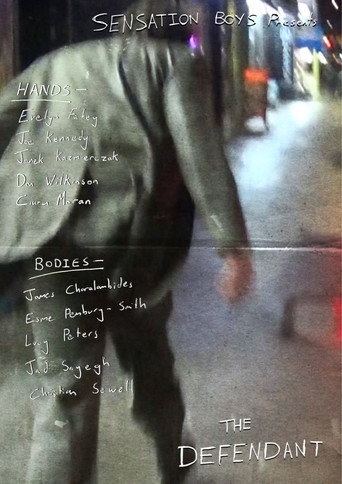 SENSATION BOYS Presents
HANDS —
Evelyn
Joe Kennedy
Janek Kazmierczak
Dan Wilkinson
Ciara Moran
BODIES —
James Charalambides
Esme Penbury-Smith
Lucy Peters
Jad Sayegh
Christian Sewell
THE
DEFENDANT